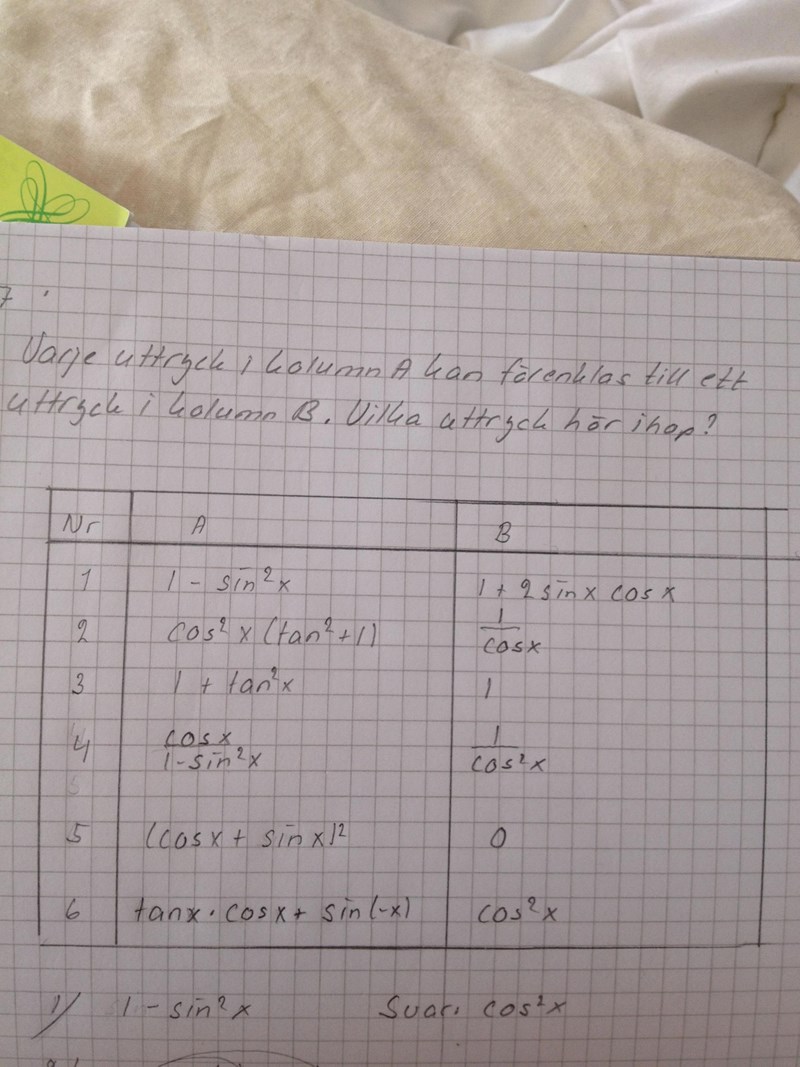 7
Varje uttryck i kolumn A kan förenklas till ett
uttryck i kolumn B. Vilka uttryck hör ihop?
Nr A B
1 1 - sin²x 1 + 2 sinx cosx
2 cos²x (tan²+1) 1/cosx
3 1 + tan²x 1
4 cosx/1-sin²x 1/cos²x
5 (cosx + sinx)² 0
6 tanx · cosx + sin(-x) cos²x
1) 1 - sin²x Svar: cos²x